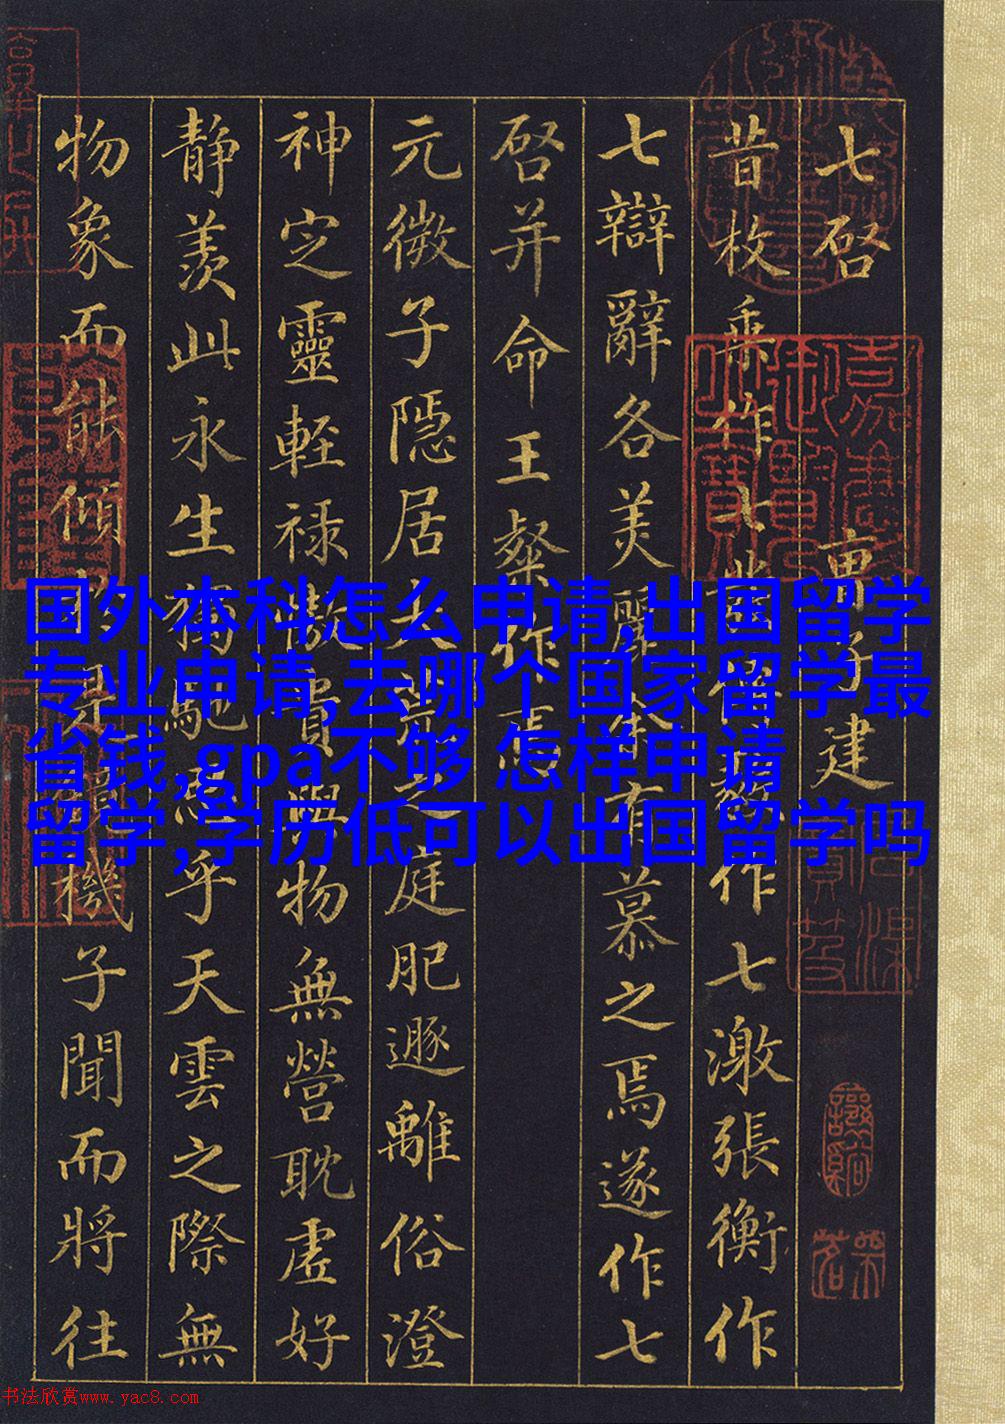 七啓 曹子建
昔枚乘作七發傅毅作七激張衡作
七辯辭各美麗余有慕之焉遂作七
啓并命王粲作焉
元微子隱居大荒之庭肥遯離俗澄
神定靈輕祿傲貴與物無營耽虛好
靜羨此永生獨馳思乎天雲之際無
物象而能傾於是鏡機子聞而將往
嘉慶御覽之寶
国外本科怎么申请,出国留学
专业申请,去哪个国家留学最
省钱,gpa不够 怎样申请
留学,学历低可以出国留学吗
书法欣赏www.yac8.com